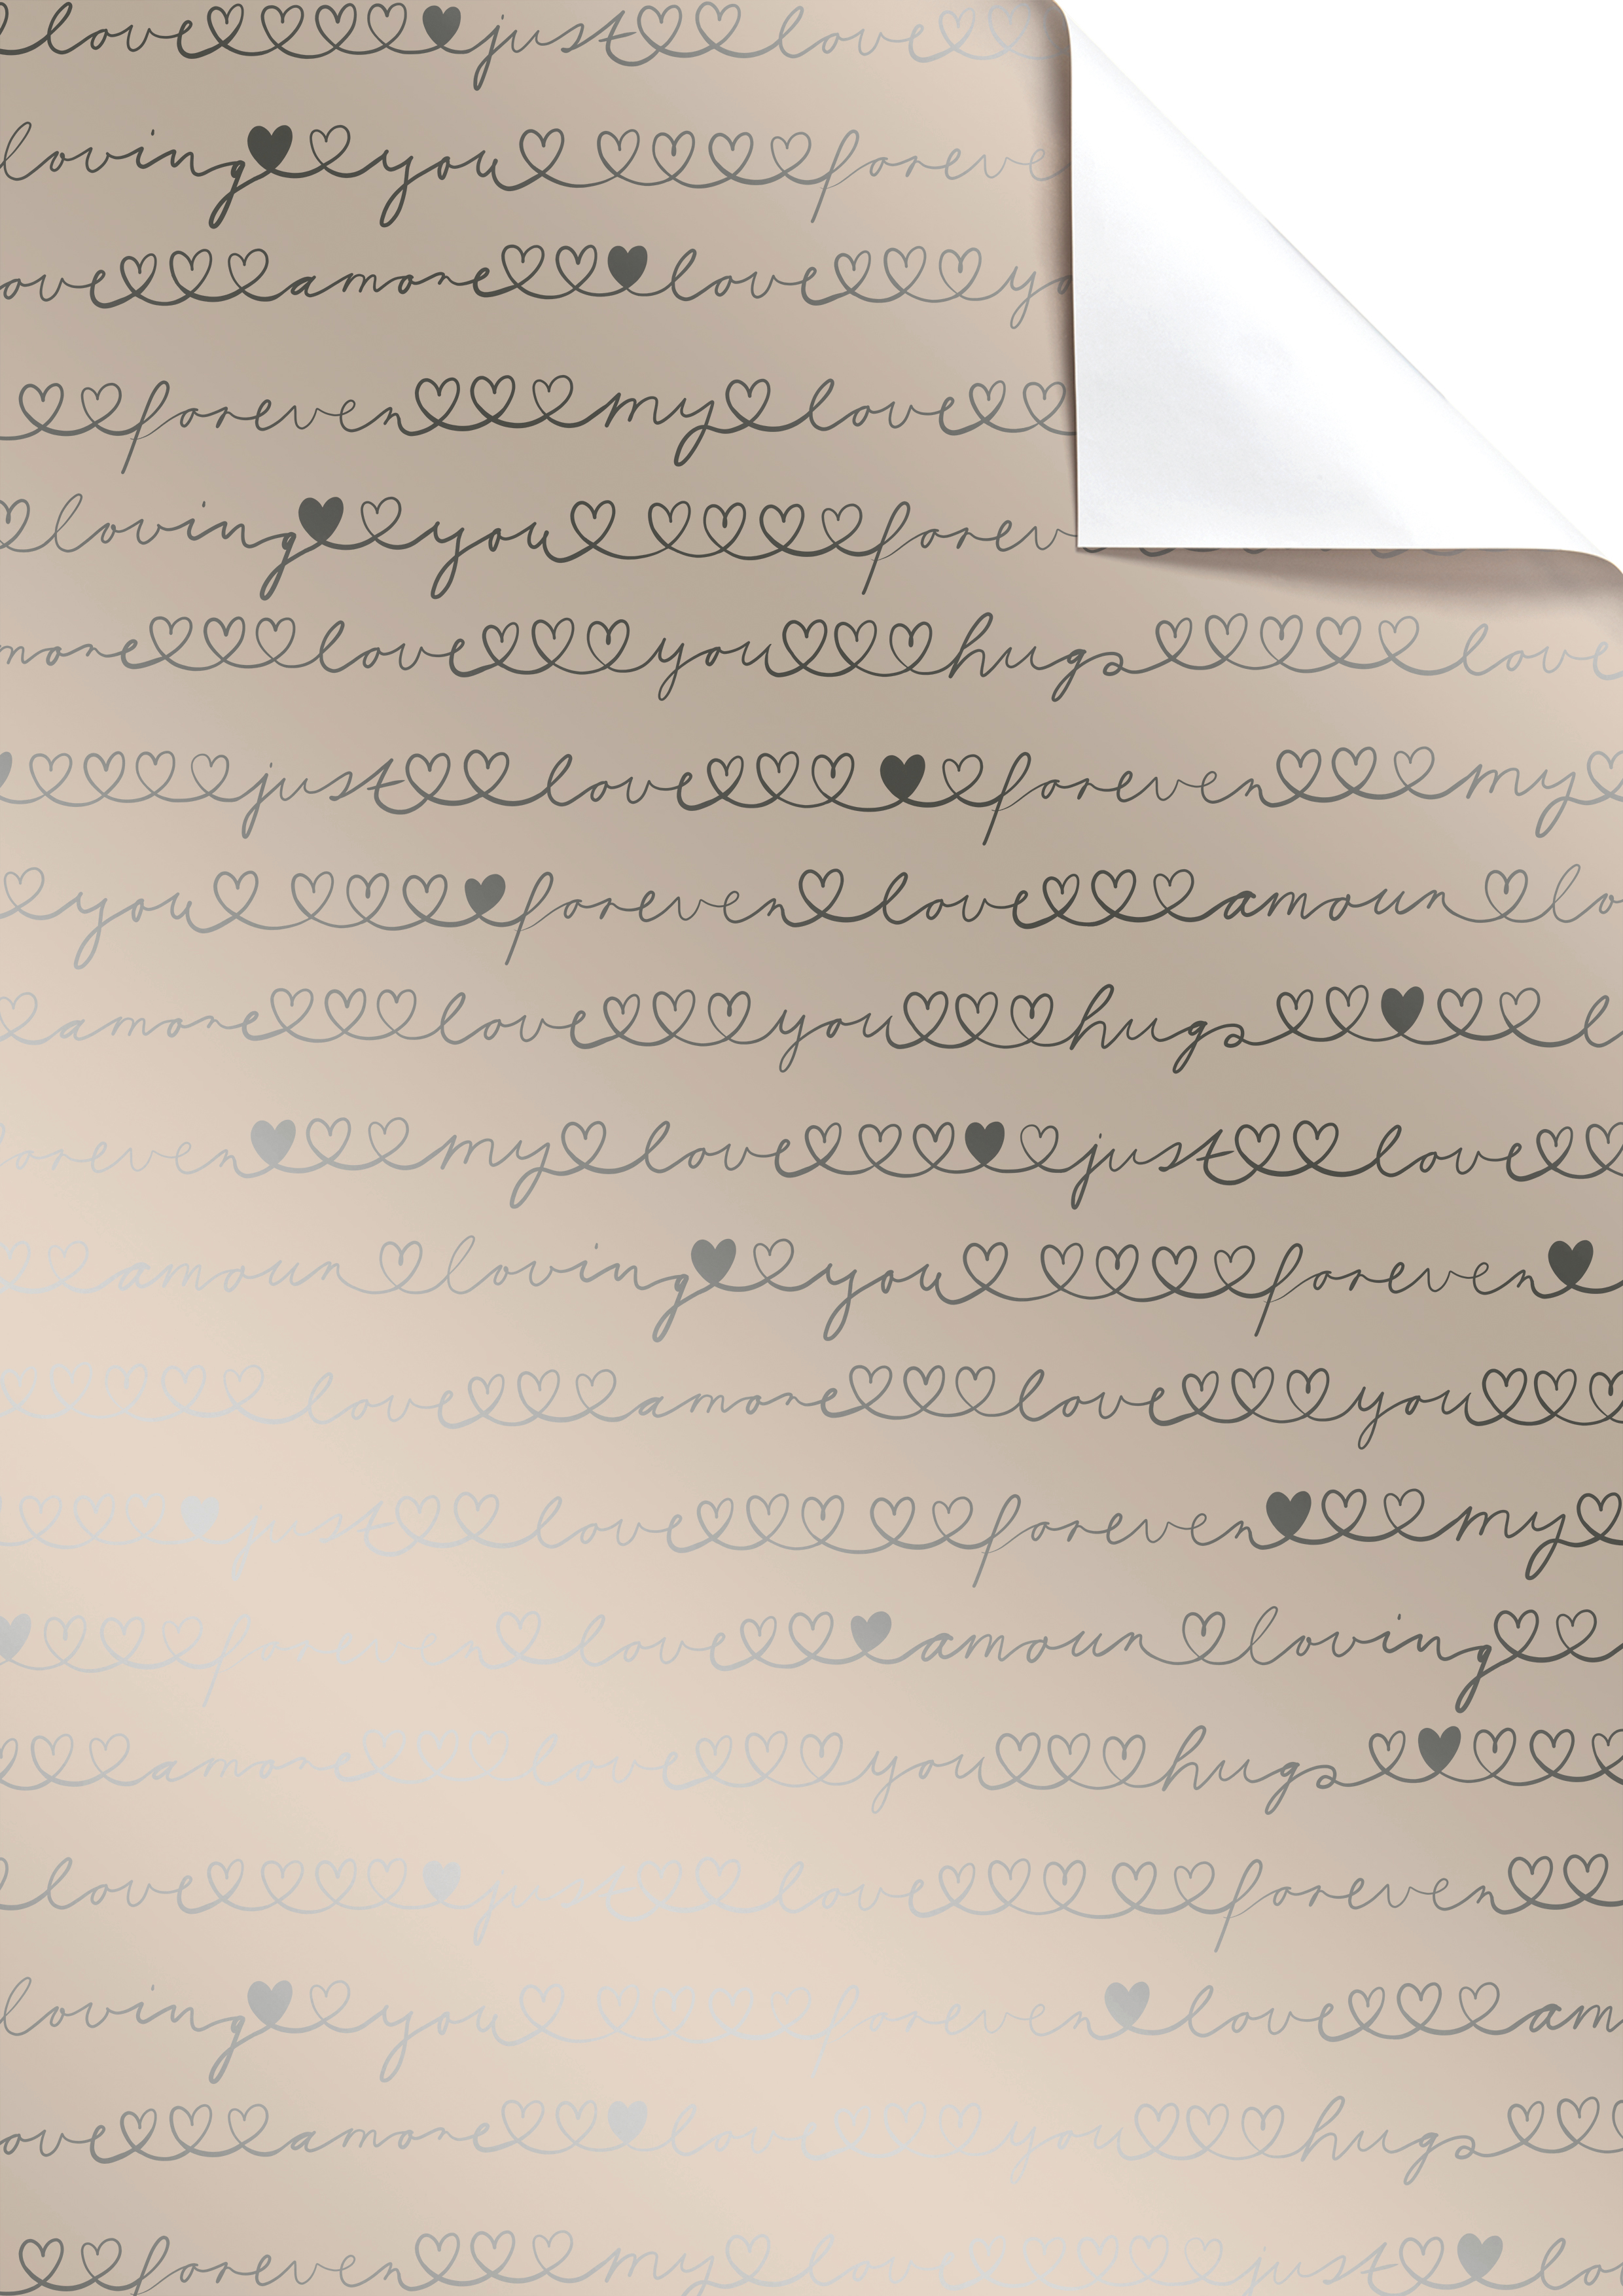 love just love
loving you foreve
ove amore love yo
forever my love
loving you forev
more love you hugs love
just love forever my
you forever love amour lo
amore love you hugs l
orever my love just love
amour loving you forever
love amore love you
just love forever my
forever love amour loving
amore love you hugs
love just love forever
loving you forever love am
ove amore love you hugs
forever my love just lo